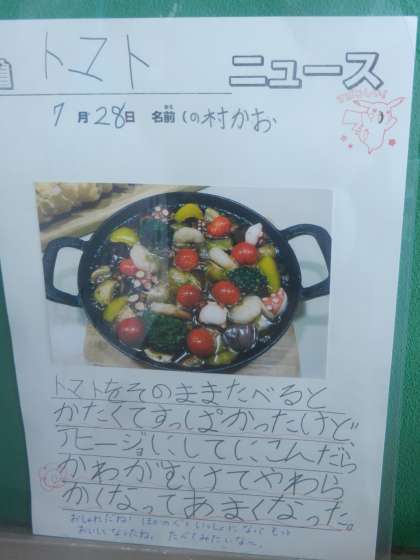 トマト ニュース
7月28日 名前 しの村かお
トマトをそのままたべると
かたくてすっぱかったけど、
アヒージョにしてにこんだら
かわがむけてやわら
かくなってあまくなった。
おしゃれだね! ほかの人といっしょになって もっと
おいしくなったね。たべてみたいな〜。